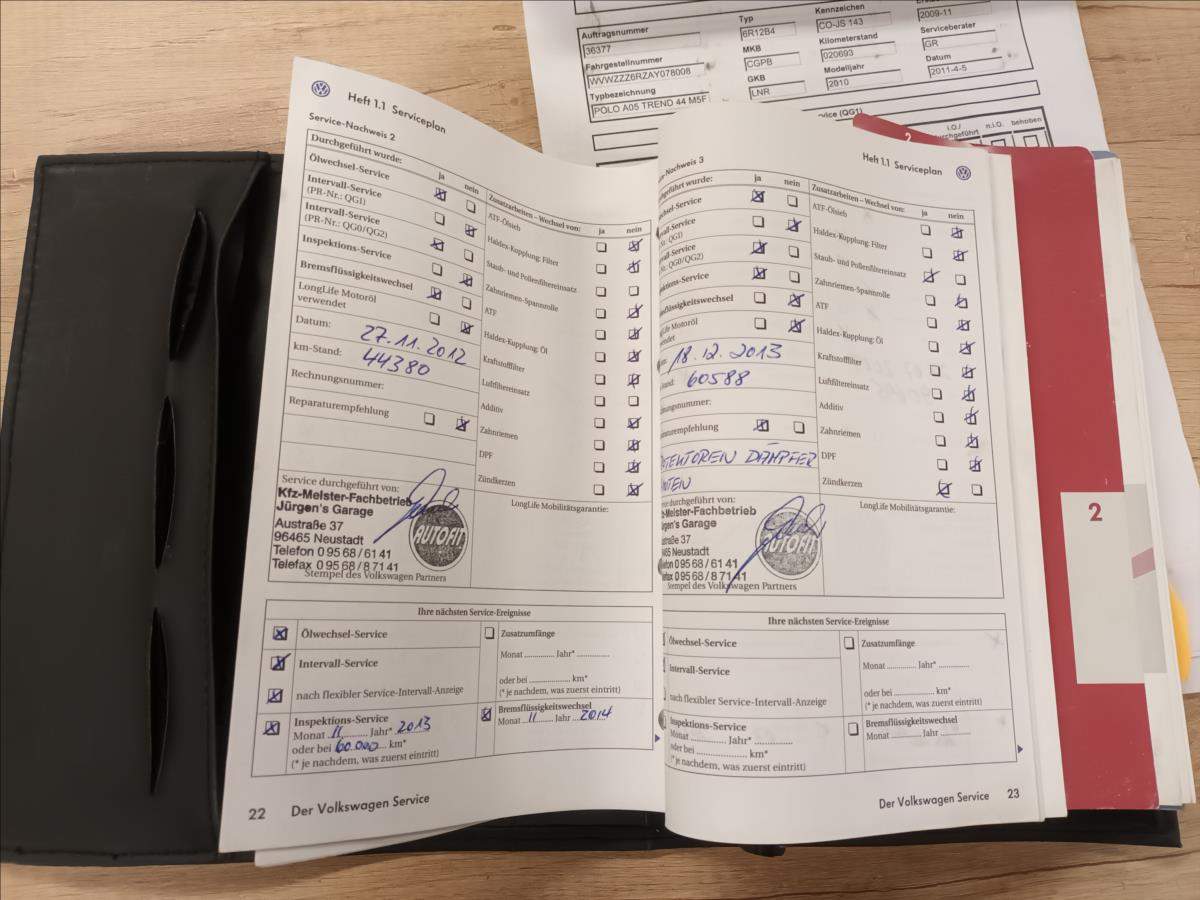 Auftragsnummer
36377
Typ
6R12B4
Kennzeichen
CO-JS 143
2009-11
Fahrgestellnummer
WVWZZZ6RZAY078008
MKB
CGPB
Kilometerstand
020693
Serviceberater
GR
Typbezeichnung
POLO A05 TREND 44 M5F
GKB
LNR
Modelljahr
2010
Datum
2011-4-5
(QG1)
i.O./
durchgeführt
n.i.O.
behoben
Heft 1.1 Serviceplan
Service-Nachweis 2
Durchgeführt wurde:
ja
nein
Ölwechsel-Service
Intervall-Service
(PR-Nr.: QG1)
Intervall-Service
(PR-Nr.: QG0/QG2)
Inspektions-Service
Bremsflüssigkeitswechsel
LongLife Motoröl
verwendet
Datum: 27.11.2012
km-Stand: 44380
Rechnungsnummer:
Reparaturempfehlung
Zusatzarbeiten – Wechsel von:
ja
nein
ATF-Ölsieb
Haldex-Kupplung: Filter
Staub- und Pollenfiltereinsatz
Zahnriemen-Spannrolle
ATF
Haldex-Kupplung: Öl
Kraftstofffilter
Luftfiltereinsatz
Additiv
Zahnriemen
DPF
Zündkerzen
Service durchgeführt von:
Kfz-Meister-Fachbetrieb
Jürgen's Garage
Austraße 37
96465 Neustadt
Telefon 0 95 68 / 61 41
Telefax 0 95 68 / 8 71 41
AUTOFIT
Stempel des Volkswagen Partners
LongLife Mobilitätsgarantie:
Ihre nächsten Service-Ereignisse
Ölwechsel-Service
Intervall-Service
nach flexibler Service-Intervall-Anzeige
Inspektions-Service
Monat 11 Jahr* 2013
oder bei 60.000 km*
(* je nachdem, was zuerst eintritt)
Zusatzumfänge
Monat ............ Jahr* ............
oder bei ............ km*
(* je nachdem, was zuerst eintritt)
Bremsflüssigkeitswechsel
Monat 11 Jahr 2014
22 Der Volkswagen Service
2
Heft 1.1 Serviceplan
-Nachweis 3
geführt wurde:
ja
nein
echsel-Service
vall-Service
Nr.: QG1)
vall-Service
Nr.: QG0/QG2)
ektions-Service
sflüssigkeitswechsel
Life Motoröl
wendet
18.12.2013
60588
nungsnummer:
raturempfehlung
DÄMPFER
Zusatzarbeiten – Wechsel von:
ja
nein
ATF-Ölsieb
Haldex-Kupplung: Filter
Staub- und Pollenfiltereinsatz
Zahnriemen-Spannrolle
ATF
Haldex-Kupplung: Öl
Kraftstofffilter
Luftfiltereinsatz
Additiv
Zahnriemen
DPF
Zündkerzen
durchgeführt von:
-Meister-Fachbetrieb
Jürgen's Garage
straße 37
465 Neustadt
efon 0 95 68 / 61 41
0 95 68 / 8 71 41
AUTOFIT
Stempel des Volkswagen Partners
LongLife Mobilitätsgarantie:
Ihre nächsten Service-Ereignisse
Ölwechsel-Service
Intervall-Service
nach flexibler Service-Intervall-Anzeige
Inspektions-Service
Monat ............ Jahr* ............
oder bei ............ km*
(* je nachdem, was zuerst eintritt)
Zusatzumfänge
Monat ............ Jahr* ............
oder bei ............ km*
(* je nachdem, was zuerst eintritt)
Bremsflüssigkeitswechsel
Monat ............ Jahr ............
Der Volkswagen Service 23
2